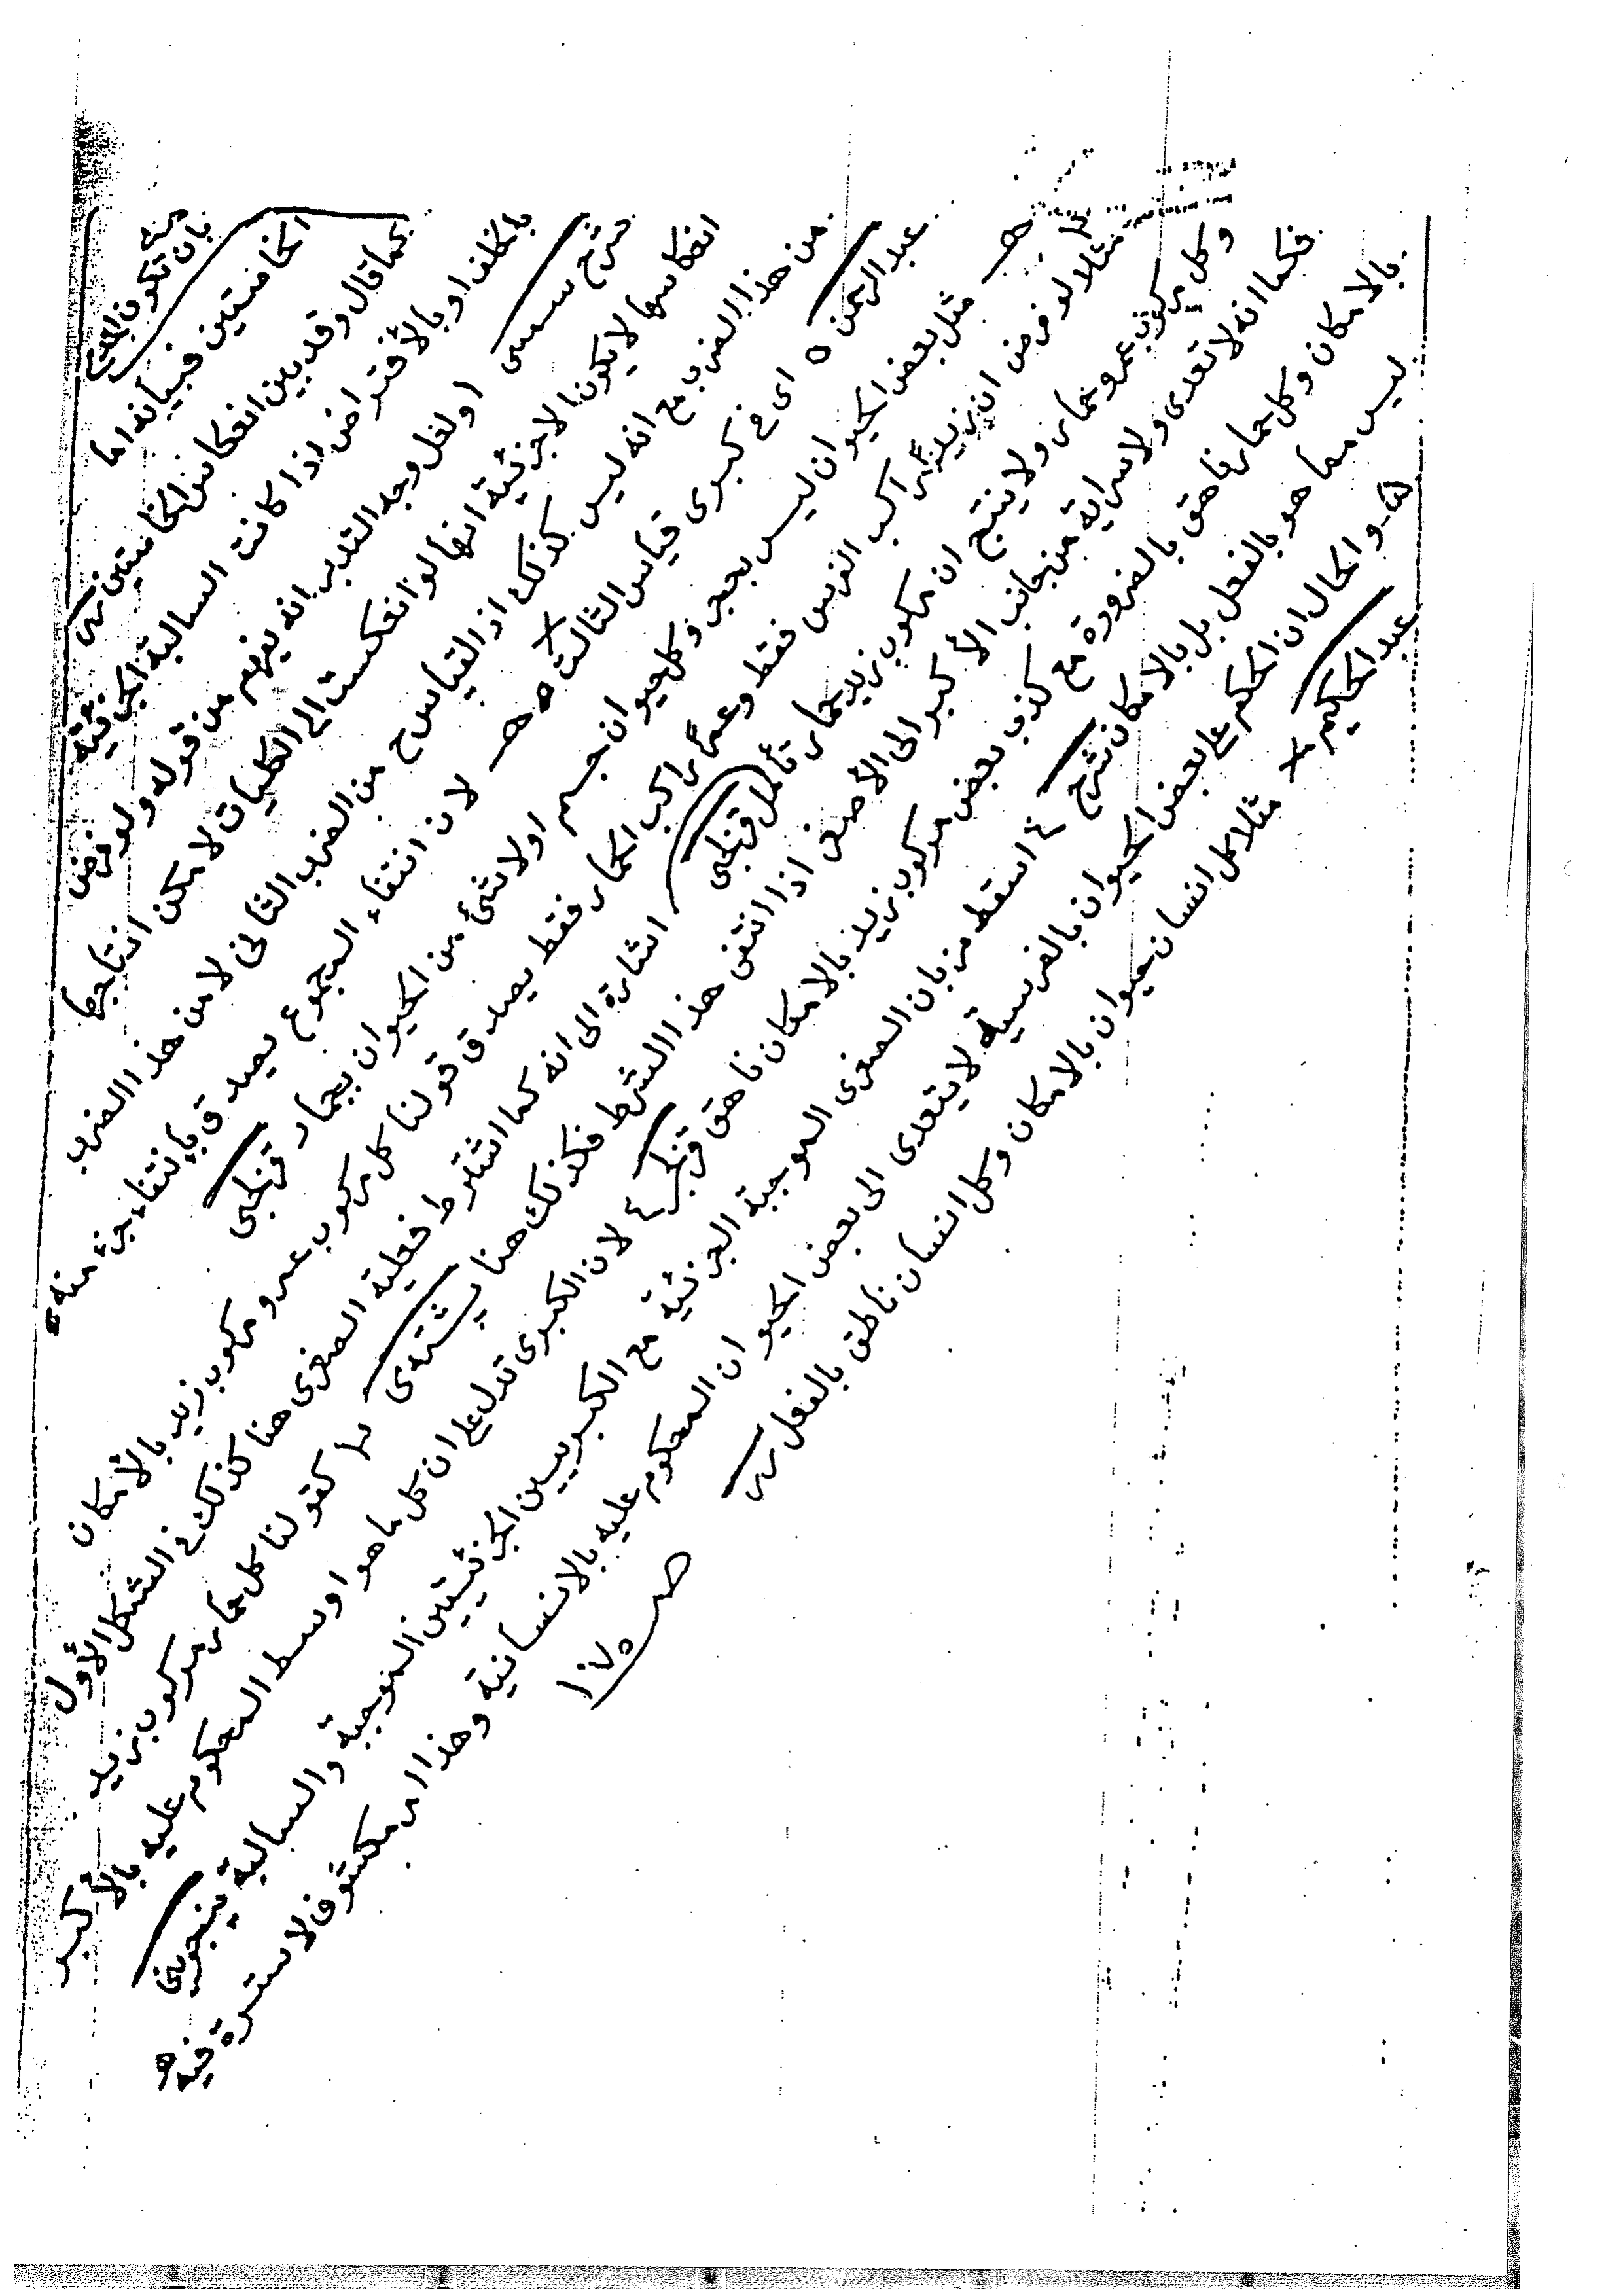 بان تكون
الخاصتين فبيانه اما
كما قال وقد بين انعكاس الخاصتين
بالخلف او بالأفتراض اذا كانت السالبة الجزئية
شرح سسى اولعل وجه التدبر انه يفهم من قوله ولو فرض
انعكاسها لا يكون الا جزئية انها لو انعكست الى الكليات لا مكن انتاجها
من هذا الضرب مع انه ليس كذلك اذ القياس ح من الضرب الثانى لا من هذا الضرب
عبد الرحمن ٥ اى فى كبرى قياس الثالث لان انتفاء المجموع يصدق بإنتفاء جزء منه
مثل بعض الحيوان ليس بحجر وكل حيوان جسم اولا شئ من الحيوان بجمار قزلجى
مثلا لو فرض ان زيد راكب الفرس فقط وعمر راكب الحمار فقط يصدق قولنا كل مركوب عمرو مركوب زيد بالأمكان
وكل مركوب عمرو حمار ولا ينتج ان مركوب زيد حمار تأمل قزلجى اشارة الى انه كما اشترط فعلية الصغرى هنا كذلك فى الشكل الأول
فكما انه لا تعدى ولا سراية من جانب الأكبر الى الأصغر اذا انتفى هذا الشرط فكذلك هنا كقولنا كل حمار مركوب زيد
بالامكان وكل حمار ناهق بالضرورة مع كذب بعض مركوب زيد بالامكان ناهق قزلجى لان الكبرى تدل على ان كل ما هو اوسط المحكوم عليه بالأكبر
ليس مما هو بالفعل بل بالامكان شرح اسقط من بان الصغرى الموجبة الجزئية مع الكبريين الجزئيتين الموجبة والسالبة پينجوينى
والحال ان الحكم على بعض الحيوان بالفرسية لا يتعدى الى بعض الحيوان المحكوم عليه بالانسانية وهذا امر مكشوف لا سترة فيه
عبد الحكيم مثلا كل انسان حيوان بالامكان وكل انسان ناطق بالفعل
صـ ١٧٠